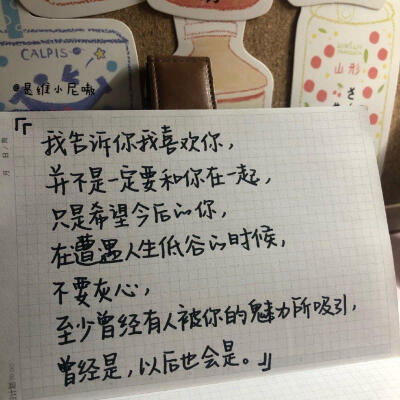 CALPIS
@是维小尼嗷
山形
さ
『我告诉你我喜欢你，
并不是一定要和你在一起，
只是希望今后的你，
在遭遇人生低谷的时候，
不要灰心，
至少曾经有人被你的魅力所吸引，
曾经是，以后也会是。』